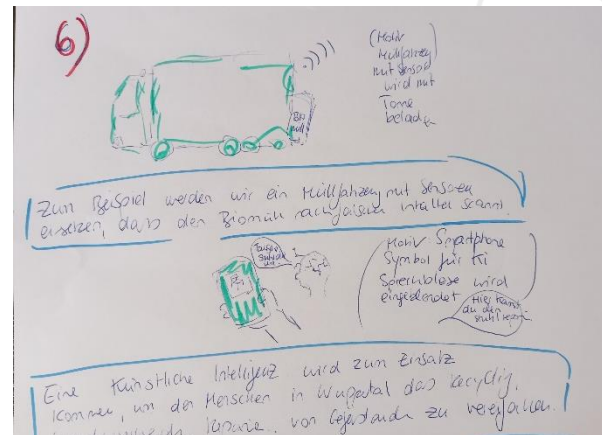 6)
(Motiv
Müllfahrzeug
mit Sensor
wird mit
Tonne
beladen
Bio
müll
Zum Beispiel werden wir ein Müllfahrzeug mit Sensoren
einsetzen, dass den Biomüll nach falschen Inhalten scannt.
Motiv Smartphone
Symbol für KI
Sprechblase wird
eingeblendet
Hier kannst
du den
Eine Künstliche Intelligenz wird zum Einsatz
kommen, um den Menschen in Wuppertal das Recycling,
von Gegenständen zu vereinfachen.